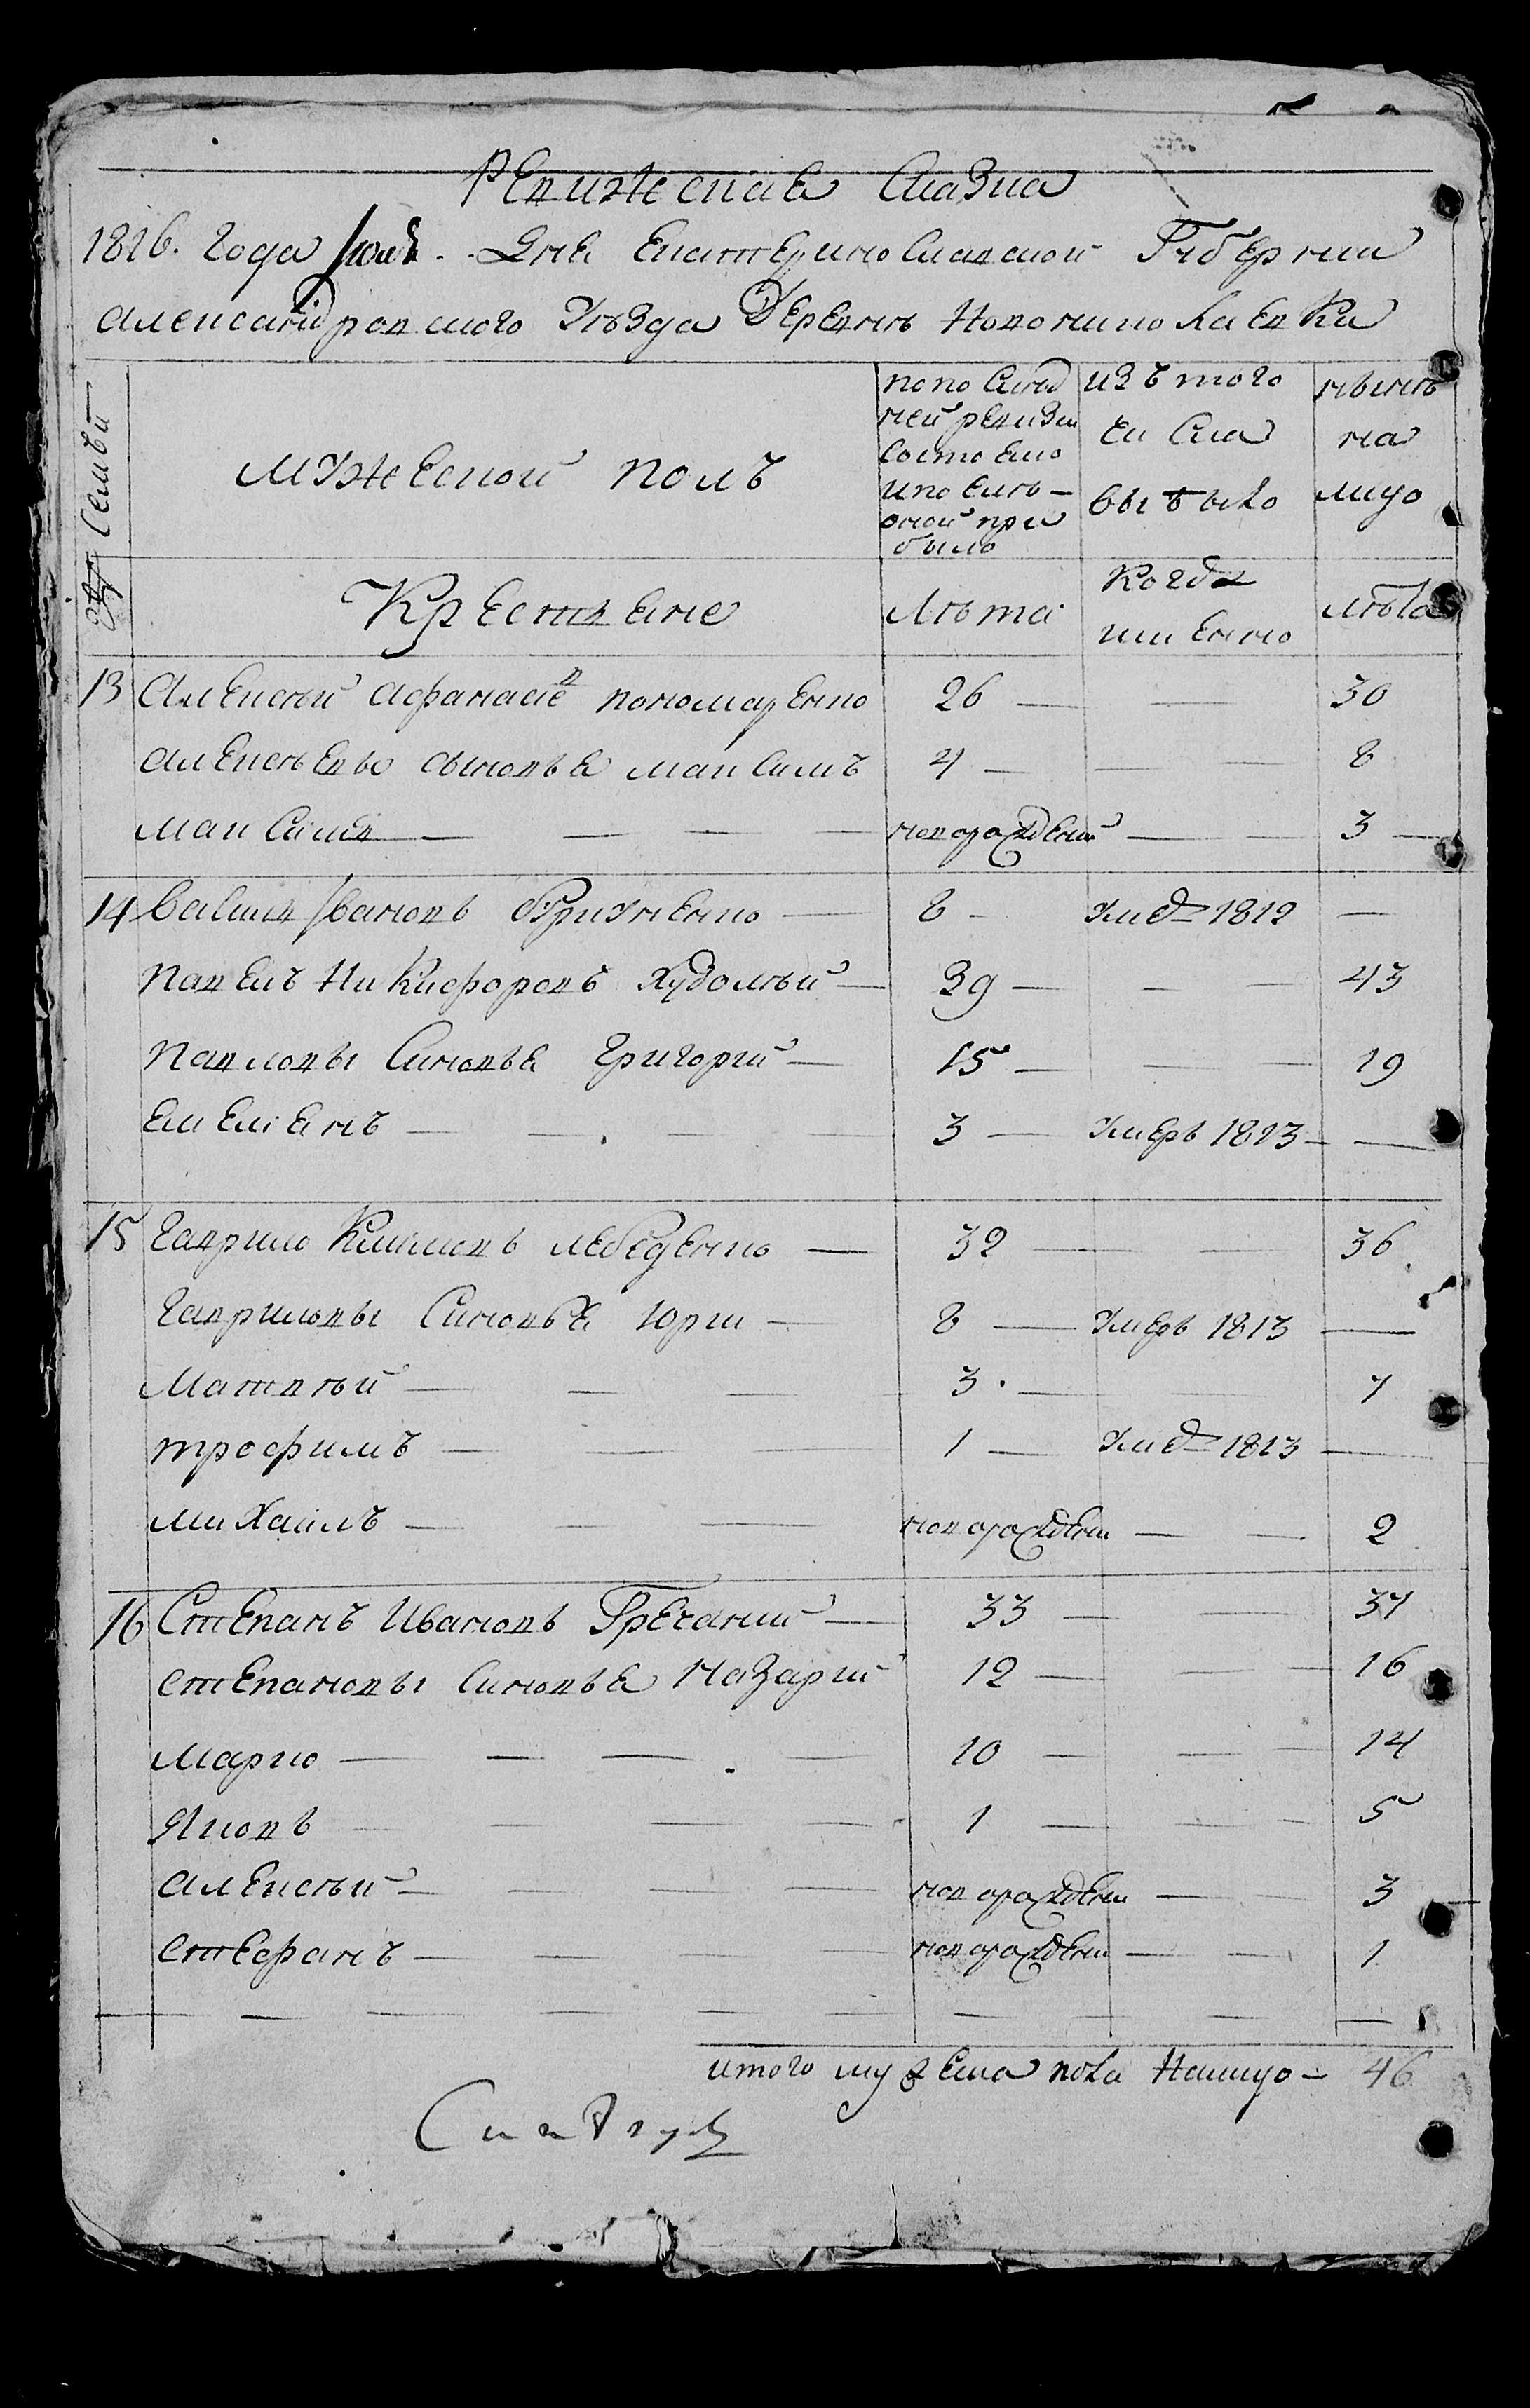 Ревижеская Сказка
1816. года Маія.. Дня Екатеринославской Губернии
Александровского Уѣзда Деревни Новониколаевки
№ Семьи
Мужеской полъ
по послѣд
ней ревизіи
состояло
и после
оной при
было
изъ того
числа
выбыло
нынѣ
на
лицо
Крестьяне
Лѣта
Когда
именно
лѣта
13 Алексѣй Афанасіев пономаренко 26 — — 30
Алексѣевы сыновья максимъ 4 — — — 8
максимъ — — — — новорожденый — — 3 —
14 Василий Ивановъ — 8 — умер 1812 —
Павелъ Никифоровъ Худолѣй — 39 — — — 43
Павловы синовья Григорий — 15 — — — 19
Емелянъ — — — — 3 — умеръ 1813 — —
15 Гаврило Климовъ лебеденко — 32 — — 36
Гавриловы Синовья Юрий — 8 — умеръ 1813 —
Матвѣй — — — 3. — — 7
трофимъ — — — 1 — умер 1813 —
михаилъ — — — новорожденій — — 2
16 Степанъ Ивановъ Гречаний — 33 — — 37
степановы синовья Назарий 12 — — — 16
Марко — — — — 10 — — — 14
Яковъ — — — — 1 — — — 5
алексѣй — — — — новорожденій — — 3
стефанъ — — — — новорожденій — — 1
итого мужеска пола Налицо — 46